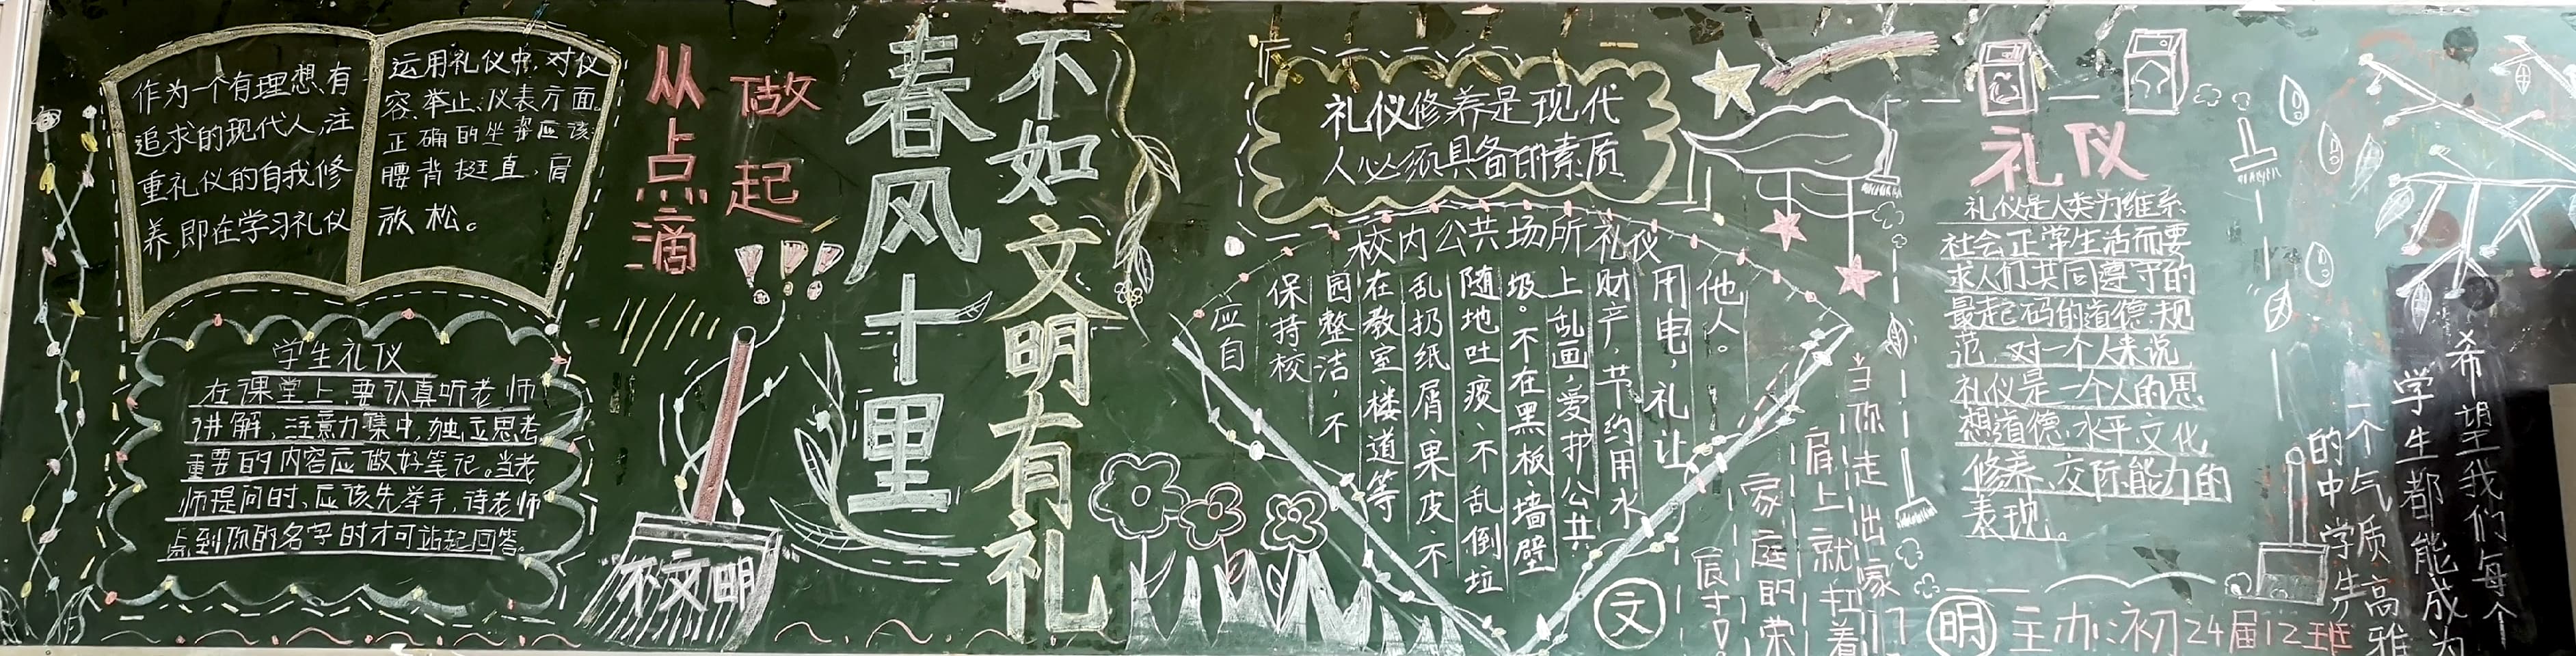 作为一个有理想、有
追求的现代人,注
重礼仪的自我修
养,即在学习礼仪
运用礼仪中,对仪
容、举止、仪表方面。
正确的坐姿应该:
腰背挺直,肩
放松。
学生礼仪
在课堂上,要认真听老师
讲解,注意力集中,独立思考
重要的内容应做好笔记。当老
师提问时,应该先举手,待老师
点到你的名字时才可站起回答。
从点滴
做起
不文明
春风十里
不如文明有礼
礼仪修养是现代
人必须具备的素质
校内公共场所礼仪
应自
保持校
园整洁,不
在教室、楼道等
乱扔纸屑、果皮、不
随地吐痰、不乱倒垃
圾。不在黑板、墙壁
上乱画,爱护公共
财产,节约用水
用电,礼让
他人。
当你走出家
肩上就扛着
家庭的荣
辰寸!
礼仪
礼仪是人类为维系
社会正常生活而要
求人们共同遵守的
最起码的道德规
范,对一个人来说
礼仪是一个人的思
想道德、水平、文化
修养、交际能力的
表现。
文
明
主办:初24届12班
希望我们每个
学生都能成为
一个气质高雅
的中学生